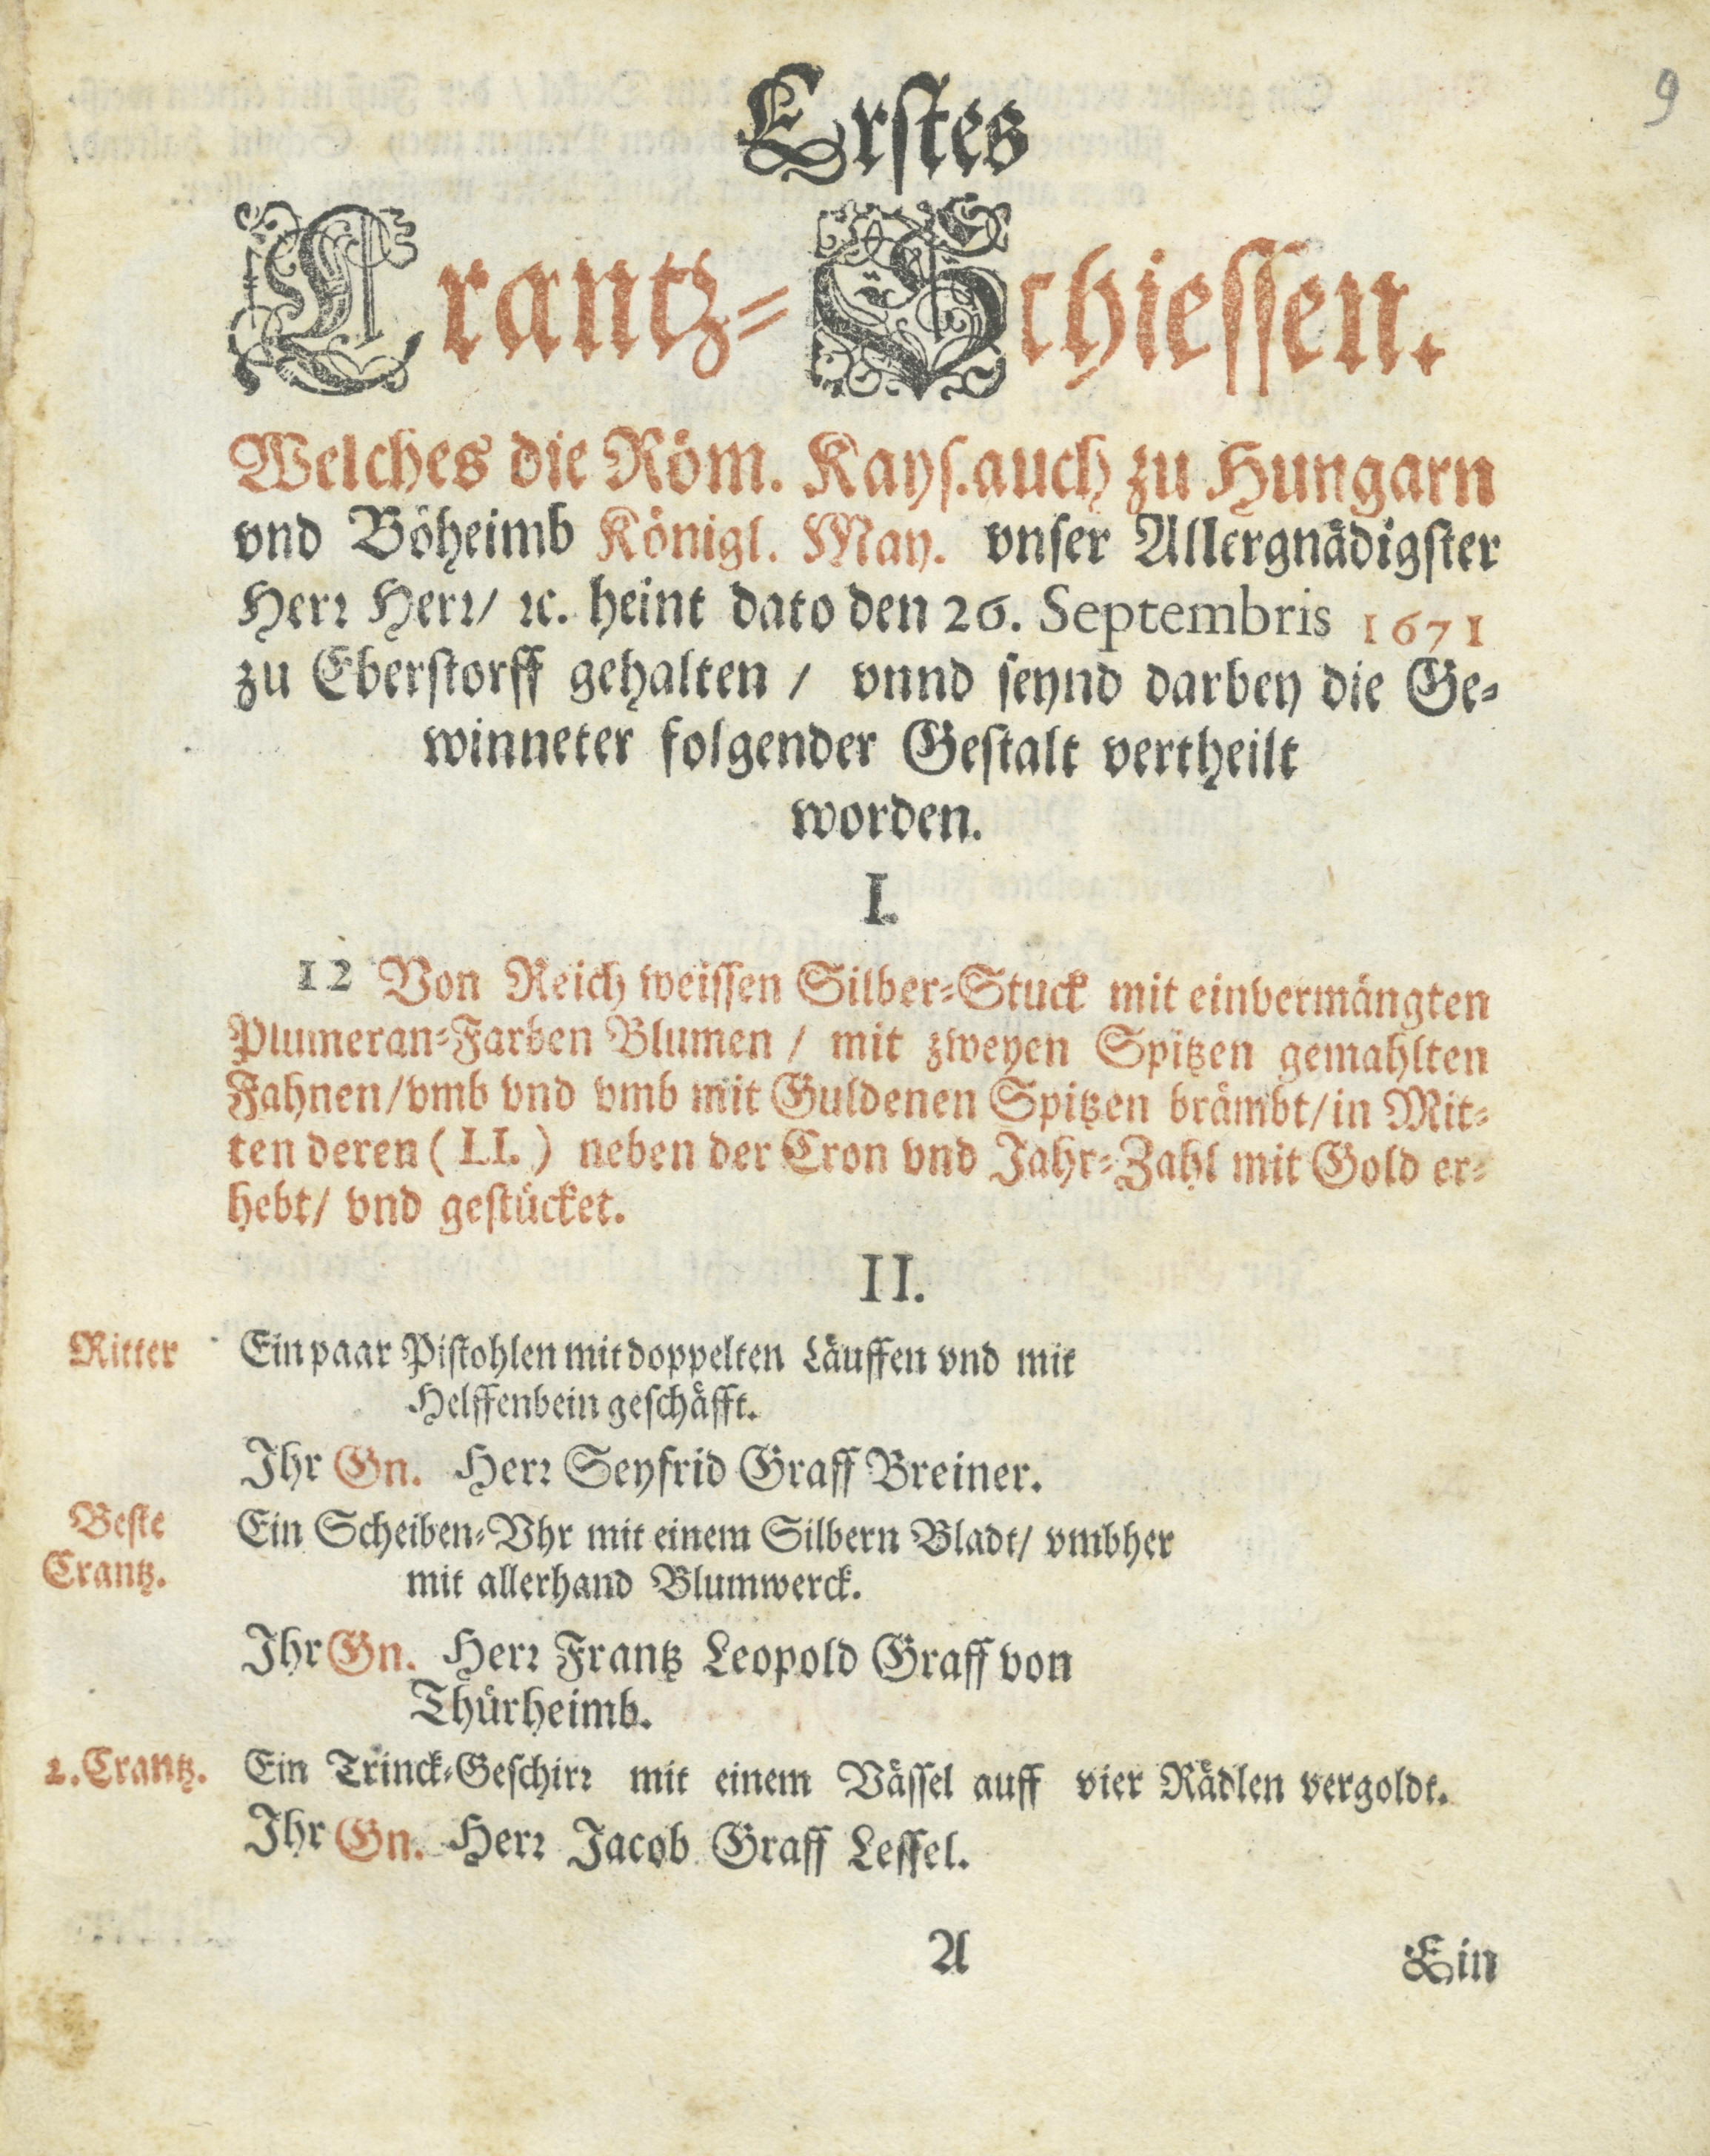 9
Erstes
Crantz-Schiessen.
Welches die Röm. Kays. auch zu Hungarn
vnd Böheimb Königl. May. vnser Allergnädigster
Herr Herr/ ꝛc. heint dato den 26. Septembris 1671
zu Eberstorff gehalten / vnnd seynd darbey die Ge-
winneter folgender Gestalt vertheilt
worden.
I.
12 Von Reich weissen Silber-Stuck mit einvermängten
Plumeran-Farben Blumen / mit zweyen Spitzen gemahlten
Fahnen/vmb vnd vmb mit Guldenen Spitzen brämbt/in Mit-
ten deren ( LI. ) neben der Cron vnd Jahr-Zahl mit Gold er-
hebt/ vnd gestücket.
II.
Ritter Ein paar Pistohlen mit doppelten Läuffen vnd mit
Helffenbein geschäfft.
Ihr Gn. Herr Seyfrid Graff Breiner.
Beste Ein Scheiben-Vhr mit einem Silbern Bladt/ vmbher
Crantz. mit allerhand Blumwerck.
Ihr Gn. Herr Frantz Leopold Graff von
Thürheimb.
2. Crantz. Ein Trinck-Geschirr mit einem Vässel auff vier Rädlen vergoldt.
Ihr Gn. Herr Jacob Graff Lessel.
A Ein